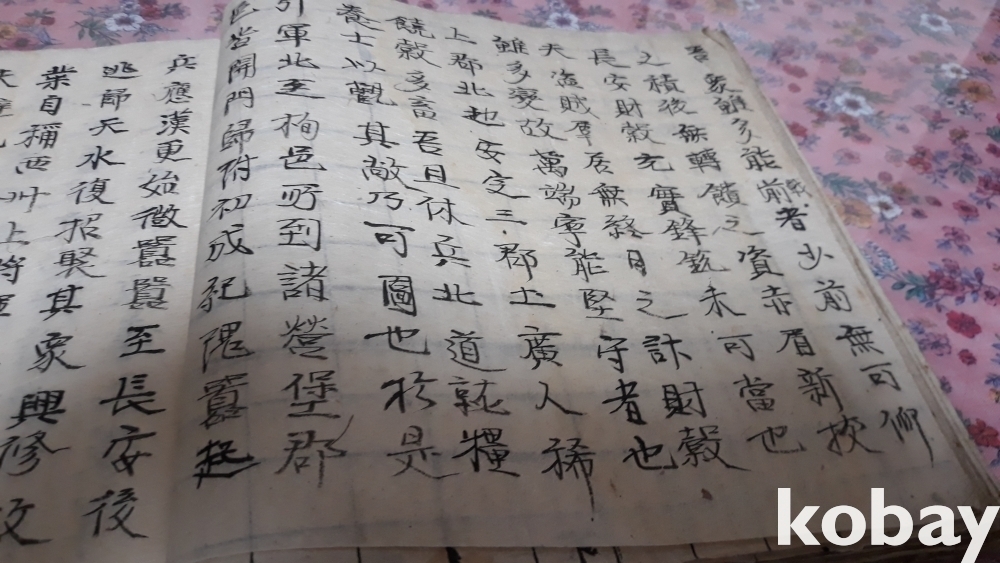 吾衆雖多能戰者少前無可仰
之積後無轉饋之資赤眉新拔
長安財穀充實鋒銳未可當也
夫盜賊群居無終日之計財穀
雖多變故萬端寧能堅守者也
上郡北地安定三郡土廣人稀
饒穀多畜吾且休兵北道就糧
養士以觀其敵乃可圖也於是
引軍北至栒邑所到諸營堡郡
邑皆開門歸附初成紀隗囂起
兵應漢更始徵囂囂至長安後
逃歸天水復招聚其衆興修故
業自稱西州上將
kobay